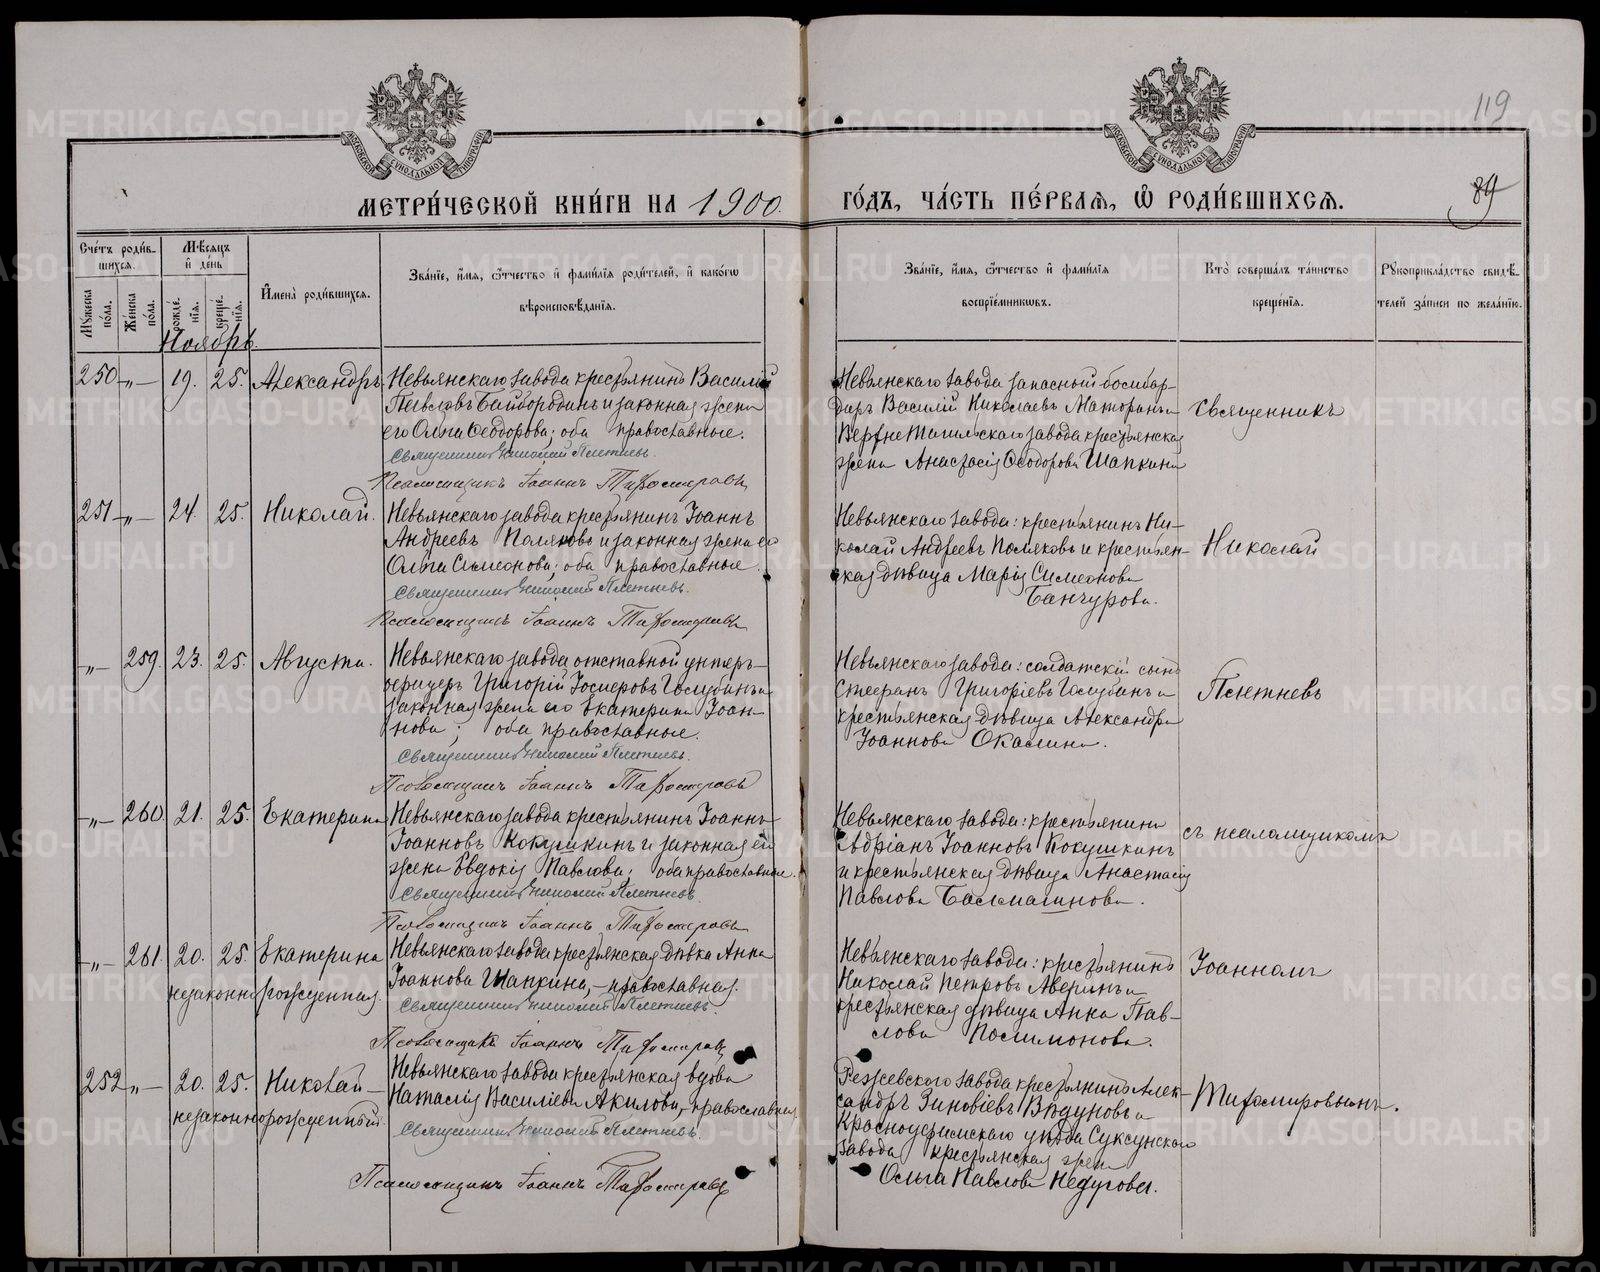 119
МОСКОВСКОЙ СѴНОДАЛЬНОЙ ТИПОГРАФІИ
МОСКОВСКОЙ СѴНОДАЛЬНОЙ ТИПОГРАФІИ
МЕТРИ́ЧЕСКОЙ КНИ́ГИ НА 1900 ГО́ДЪ, ЧА́СТЬ ПЕ́РВАѦ, Ѡ РОДИ́ВШИХСѦ.
89
Сче́тъ роди́в-
шихсѧ.
Мѣ́сѧцъ
и҆ де́нь
Мꙋ́жеска по́ла.
Же́нска по́ла.
рожде́нїѧ.
креще́нїѧ.
И҆мена̀ роди́вшихсѧ.
Зва́нїе, и҆́мѧ, ѻ҆́тчество и҆ фами́лїѧ роди́телей, и҆ како́гѡ
вѣроисповѣ́данїѧ.
Зва́нїе, и҆́мѧ, ѻ҆́тчество и҆ фами́лїѧ
воспрїе́мникѡвъ.
Кто̀ соверша́лъ та́инство
креще́нїѧ.
Рꙋкоприкла́дство свидѣ́-
телей за́писи по жела́нїю.
Ноябрь.
250 -„- 19. 25. Александръ
Невьянскаго завода крестьянинъ Василій
Павловъ Байбородинъ и законная жена
его Ольга Ѳеодорова; оба православные.
Священникъ Николай Плетневъ.
Псаломщикъ Іоаннъ Тихомировъ
Невьянскаго завода запасный бомбар-
диръ Василій Николаевъ Маторинъ и
Верхне Тагильскаго завода крестьянская
жена Анастасія Ѳеодорова Шапкина
Священникъ
251 -„- 24. 25. Николай.
Невьянскаго завода крестьянинъ Іоаннъ
Андреевъ Поляковъ и законная жена его
Ольга Симеонова; оба православные.
Священникъ Николай Плетневъ.
Псаломщикъ Іоаннъ Тихомировъ
Невьянскаго завода: крестьянинъ Ни-
колай Андреевъ Поляковъ и крестьян-
ская дѣвица Марія Симеонова
Банчурова.
Николай
-„- 259. 23. 25. Августа.
Невьянскаго завода отставной унтеръ-
офицеръ Григорій Іосифовъ Голубинъ и
законная жена его Екатерина Іоан-
нова; оба православные.
Священникъ Николай Плетневъ.
Псаломщикъ Іоаннъ Тихомировъ
Невьянскаго завода: солдатскій сынъ
Стефанъ Григоріевъ Голубинъ и
крестьянская дѣвица Александра
Іоаннова Окасина.
Плетневъ
-„- 260. 21. 25. Екатерина
Невьянскаго завода крестьянинъ Іоаннъ
Іоанновъ Кокушкинъ и законная его
жена Евдокія Павлова; оба православные.
Священникъ Николай Плетневъ.
Псаломщикъ Іоаннъ Тихомировъ
Невьянскаго завода: крестьянинъ
Адріанъ Іоанновъ Кокушкинъ
и крестьянская дѣвица Анастасія
Павлова Балмашнова.
съ псаломщикомъ
-„- 261. 20. 25. Екатерина
незаконнорожденная.
Невьянскаго завода крестьянская дѣвка Анна
Іоаннова Шапкина, - православная.
Священникъ Николай Плетневъ.
Псаломщикъ Іоаннъ Тихомировъ
Невьянскаго завода: крестьянинъ
Николай Петровъ Аверинъ и
крестьянская дѣвица Анна Пав-
лова Посимонова.
Іоанномъ
252 „- 20. 25. Николай -
незаконнорожденный.
Невьянскаго завода крестьянская вдова
Наталія Василіева Акилова, - православная
Священникъ Николай Плетневъ.
Псаломщикъ Іоаннъ Тихомировъ
Режевского завода крестьянинъ Алек-
сандръ Зиновіевъ Вѣдуновъ и
Красноуфимскаго уѣзда Суксунскаго
завода крестьянская жена
Ольга Павлова Недугова.
Тихомировымъ.
METRIKI.GASO-URAL.RU